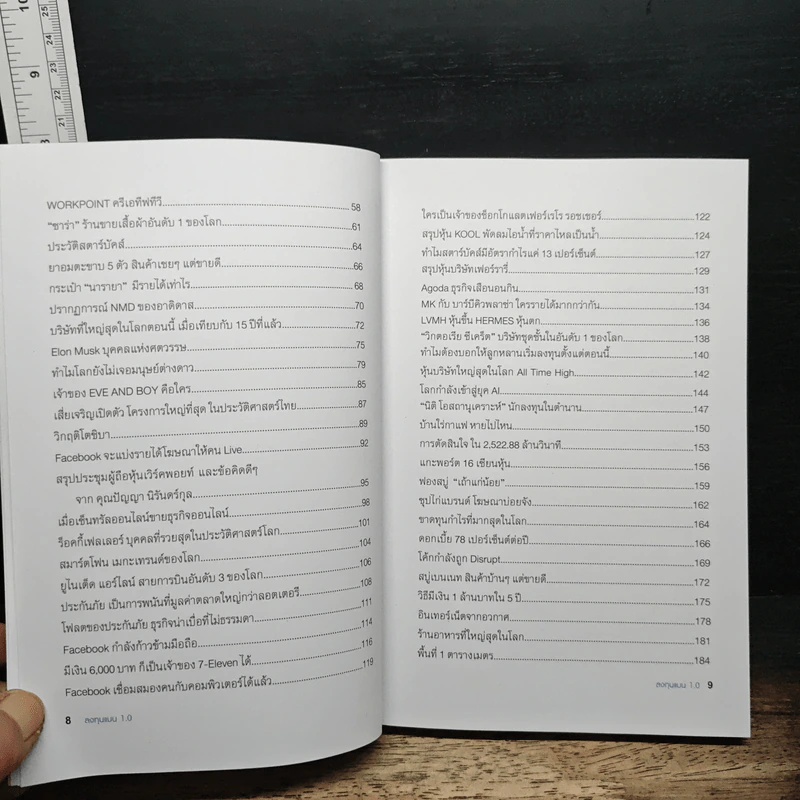 10
9
25
24
23
22
21
WORKPOINT ครีเอทีฟทีวี 58
“ซาร่า” ร้านขายเสื้อผ้าอันดับ 1 ของโลก 61
ประวัติสตาร์บัคส์ 64
ยาอมตะขาบ 5 ตัว สินค้าเชยๆ แต่ขายดี 66
กระเป๋า “นารายา” มีรายได้เท่าไร 68
ปรากฏการณ์ NMD ของอาดิดาส 70
บริษัทที่ใหญ่สุดในโลกตอนนี้ เมื่อเทียบกับ 15 ปีที่แล้ว 72
Elon Musk บุคคลแห่งศตวรรษ 75
ทำไมโลกยังไม่เจอมนุษย์ต่างดาว 79
เจ้าของ EVE AND BOY คือใคร 85
เสี่ยเจริญเปิดตัว โครงการใหญ่ที่สุด ในประวัติศาสตร์ไทย 87
วิกฤติโตชิบา 89
Facebook จะแบ่งรายได้โฆษณาให้คน Live 92
สรุปประชุมผู้ถือหุ้นเวิร์คพอยท์ และข้อคิดดีๆ
จาก คุณปัญญา นิรันดร์กุล 95
เมื่อเซ็นทรัลออนไลน์ขายธุรกิจออนไลน์ 98
ร็อคกี้เฟลเลอร์ บุคคลที่รวยสุดในประวัติศาสตร์โลก 101
สมาร์ตโฟน เมกะเทรนด์ของโลก 104
ยูไนเต็ด แอร์ไลน์ สายการบินอันดับ 3 ของโลก 106
ประกันภัย เป็นการพนันที่มูลค่าตลาดใหญ่กว่าลอตเตอรี่ 108
โฟลตของประกันภัย ธุรกิจน่าเบื่อที่ไม่ธรรมดา 111
Facebook กำลังก้าวข้ามมือถือ 114
มีเงิน 6,000 บาท ก็เป็นเจ้าของ 7-Eleven ได้ 116
Facebook เชื่อมสมองคนกับคอมพิวเตอร์ได้แล้ว 119
8 ลงทุนแมน 1.0
ใครเป็นเจ้าของช็อกโกแลตเฟอร์เรโร รอชเชอร์ 122
สรุปหุ้น KOOL พัดลมไอน้ำที่ราคาไหลเป็นน้ำ 124
ทำไมสตาร์บัคส์มีอัตรากำไรแค่ 13 เปอร์เซ็นต์ 127
สรุปหุ้นบริษัทเฟอร์รารี่ 129
Agoda ธุรกิจเสือนอนกิน 131
MK กับ บาร์บีคิวพลาซ่า ใครรายได้มากกว่ากัน 134
LVMH หุ้นขึ้น HERMES หุ้นตก 136
“วิกตอเรีย ซีเคร็ต” บริษัทชุดชั้นในอันดับ 1 ของโลก 138
ทำไมต้องบอกให้ลูกหลานเริ่มลงทุนตั้งแต่ตอนนี้ 140
หุ้นบริษัทใหญ่สุดในโลก All Time High 142
โลกกำลังเข้าสู่ยุค AI 144
“นิติ โอสถานุเคราะห์” นักลงทุนในตำนาน 147
บ้านไร่กาแฟ หายไปไหน 150
การตัดสินใจ ใน 2,522.88 ล้านวินาที 153
แกะพอร์ต 16 เซียนหุ้น 156
ฟองสบู่ “เถ้าแก่น้อย” 159
ซุปไก่แบรนด์ โฆษณาบ่อยจัง 162
ขาดทุนกำไรที่มากสุดในโลก 164
ดอกเบี้ย 78 เปอร์เซ็นต์ต่อปี 166
โค้กกำลังถูก Disrupt 169
สบู่เบนเนท สินค้าบ้านๆ แต่ขายดี 172
วิธีมีเงิน 1 ล้านบาทใน 5 ปี 175
อินเทอร์เน็ตจากอวกาศ 178
ร้านอาหารที่ใหญ่สุดในโลก 181
พื้นที่ 1 ตารางเมตร 184
ลงทุนแมน 1.0 9